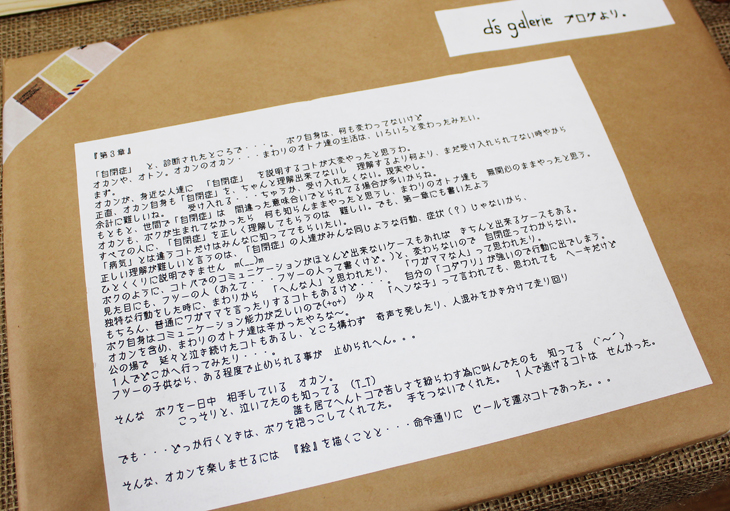 d's galerie ブログより。
『第３章』
「自閉症」 と、診断されたところで・・・。 ボク自身は、何も変わってないけど
オカンや、オトン。オカンのオカン・・・まわりのオトナ達の生活は、いろいろと変わったみたい。
まず。
オカンが、身近な人達に 「自閉症」 を説明するコトが大変やったと思うわ。
正直、オカン自身も「自閉症」を、ちゃんと理解出来てないし 理解するより何より、まだ受け入れられてない時やから
余計に難しいね。 受け入れる・・・ちゃうが、受け入れたくない。現実やし。
もともと、世間で「自閉症」は 間違った意味合いでとられてる場合が多いからね。
オカンも、ボクが生まれてなかったら 何も知らんままやったと思うし、まわりのオトナ達も 無関心のままやったと思う。
すべての人に、「自閉症」を正しく理解してもらうのは 難しい。でも、第一章にも書いたよう
「病気」とは違うコトだけはみんなに知っててもらいたい。
正しい理解が難しいと言うのは、「自閉症」の人達がみんな同じような行動、症状（？）じゃないから、
ひとくくりに説明できません m(__)m
ボクのように、コトバでのコミュニケーションがほとんど出来ないケースもあれば きちんと出来るケースもある。
見た目にも、フツーの人（あえて・・・フツーの人って書くけど。）と、変わらないので 自閉症ってわからない。
独特な行動をした時に、まわりから 「へんな人」と思われたり、「ワガママな人」って思われたり。
もちろん、普通にワガママを言ったりするコトもあるけど・・・。 自分の「コダワリ」が強いので行動に出てしまう。
ボク自身はコミュニケーション能力が乏しいので(+o+) 少々 「ヘンな子」って言われても、思われても へーキだけど
オカンを含め、まわりのオトナ達は辛かったやろな～。
公の場で 延々と泣き続けたコトもあるし、ところ構わず 奇声を発したり、人混みをかき分けて走り回り
１人でどこかへ行ってみたり・・・。
フツーの子供なら、ある程度で止められる事が 止められへん。。。
そんな ボクを一日中 相手している オカン。
こっそりと、泣いてたのも知ってる (T_T)
誰も居てへんトコで苦しさを紛らわす為に叫んでたのも 知ってる
でも・・・どっか行くときは、ボクを抱っこしてくれてた。 手をつないでくれた。 １人で逃げるコトは せんかった。
そんな、オカンを楽しませるには 『絵』を描くことと・・・命令通りに ビールを運ぶコトであった。。。